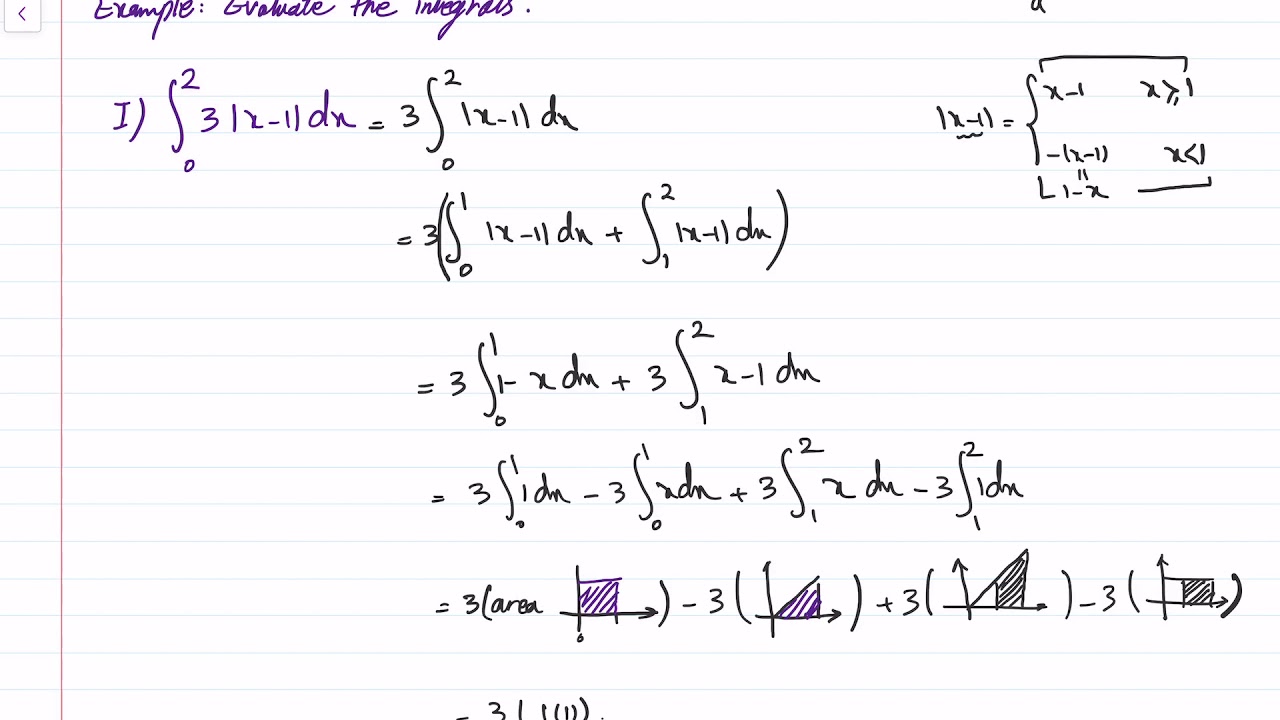 Example: Evaluate the integrals.
a
I) ∫₀² 3|x-1|dx = 3∫₀² |x-1|dx
|x-1| = { x-1 x⩾1
-(x-1) x<1
=
1-x
= 3(∫₀¹ |x-1|dx + ∫₁² |x-1|dx)
= 3∫₀¹ 1-x dx + 3∫₁² x-1 dx
= 3∫₀¹ 1dx - 3∫₀¹ xdx + 3∫₁² x dx - 3∫₁² 1dx
= 3(area 0) - 3( ) + 3( ) - 3( )
= 3(1(1))